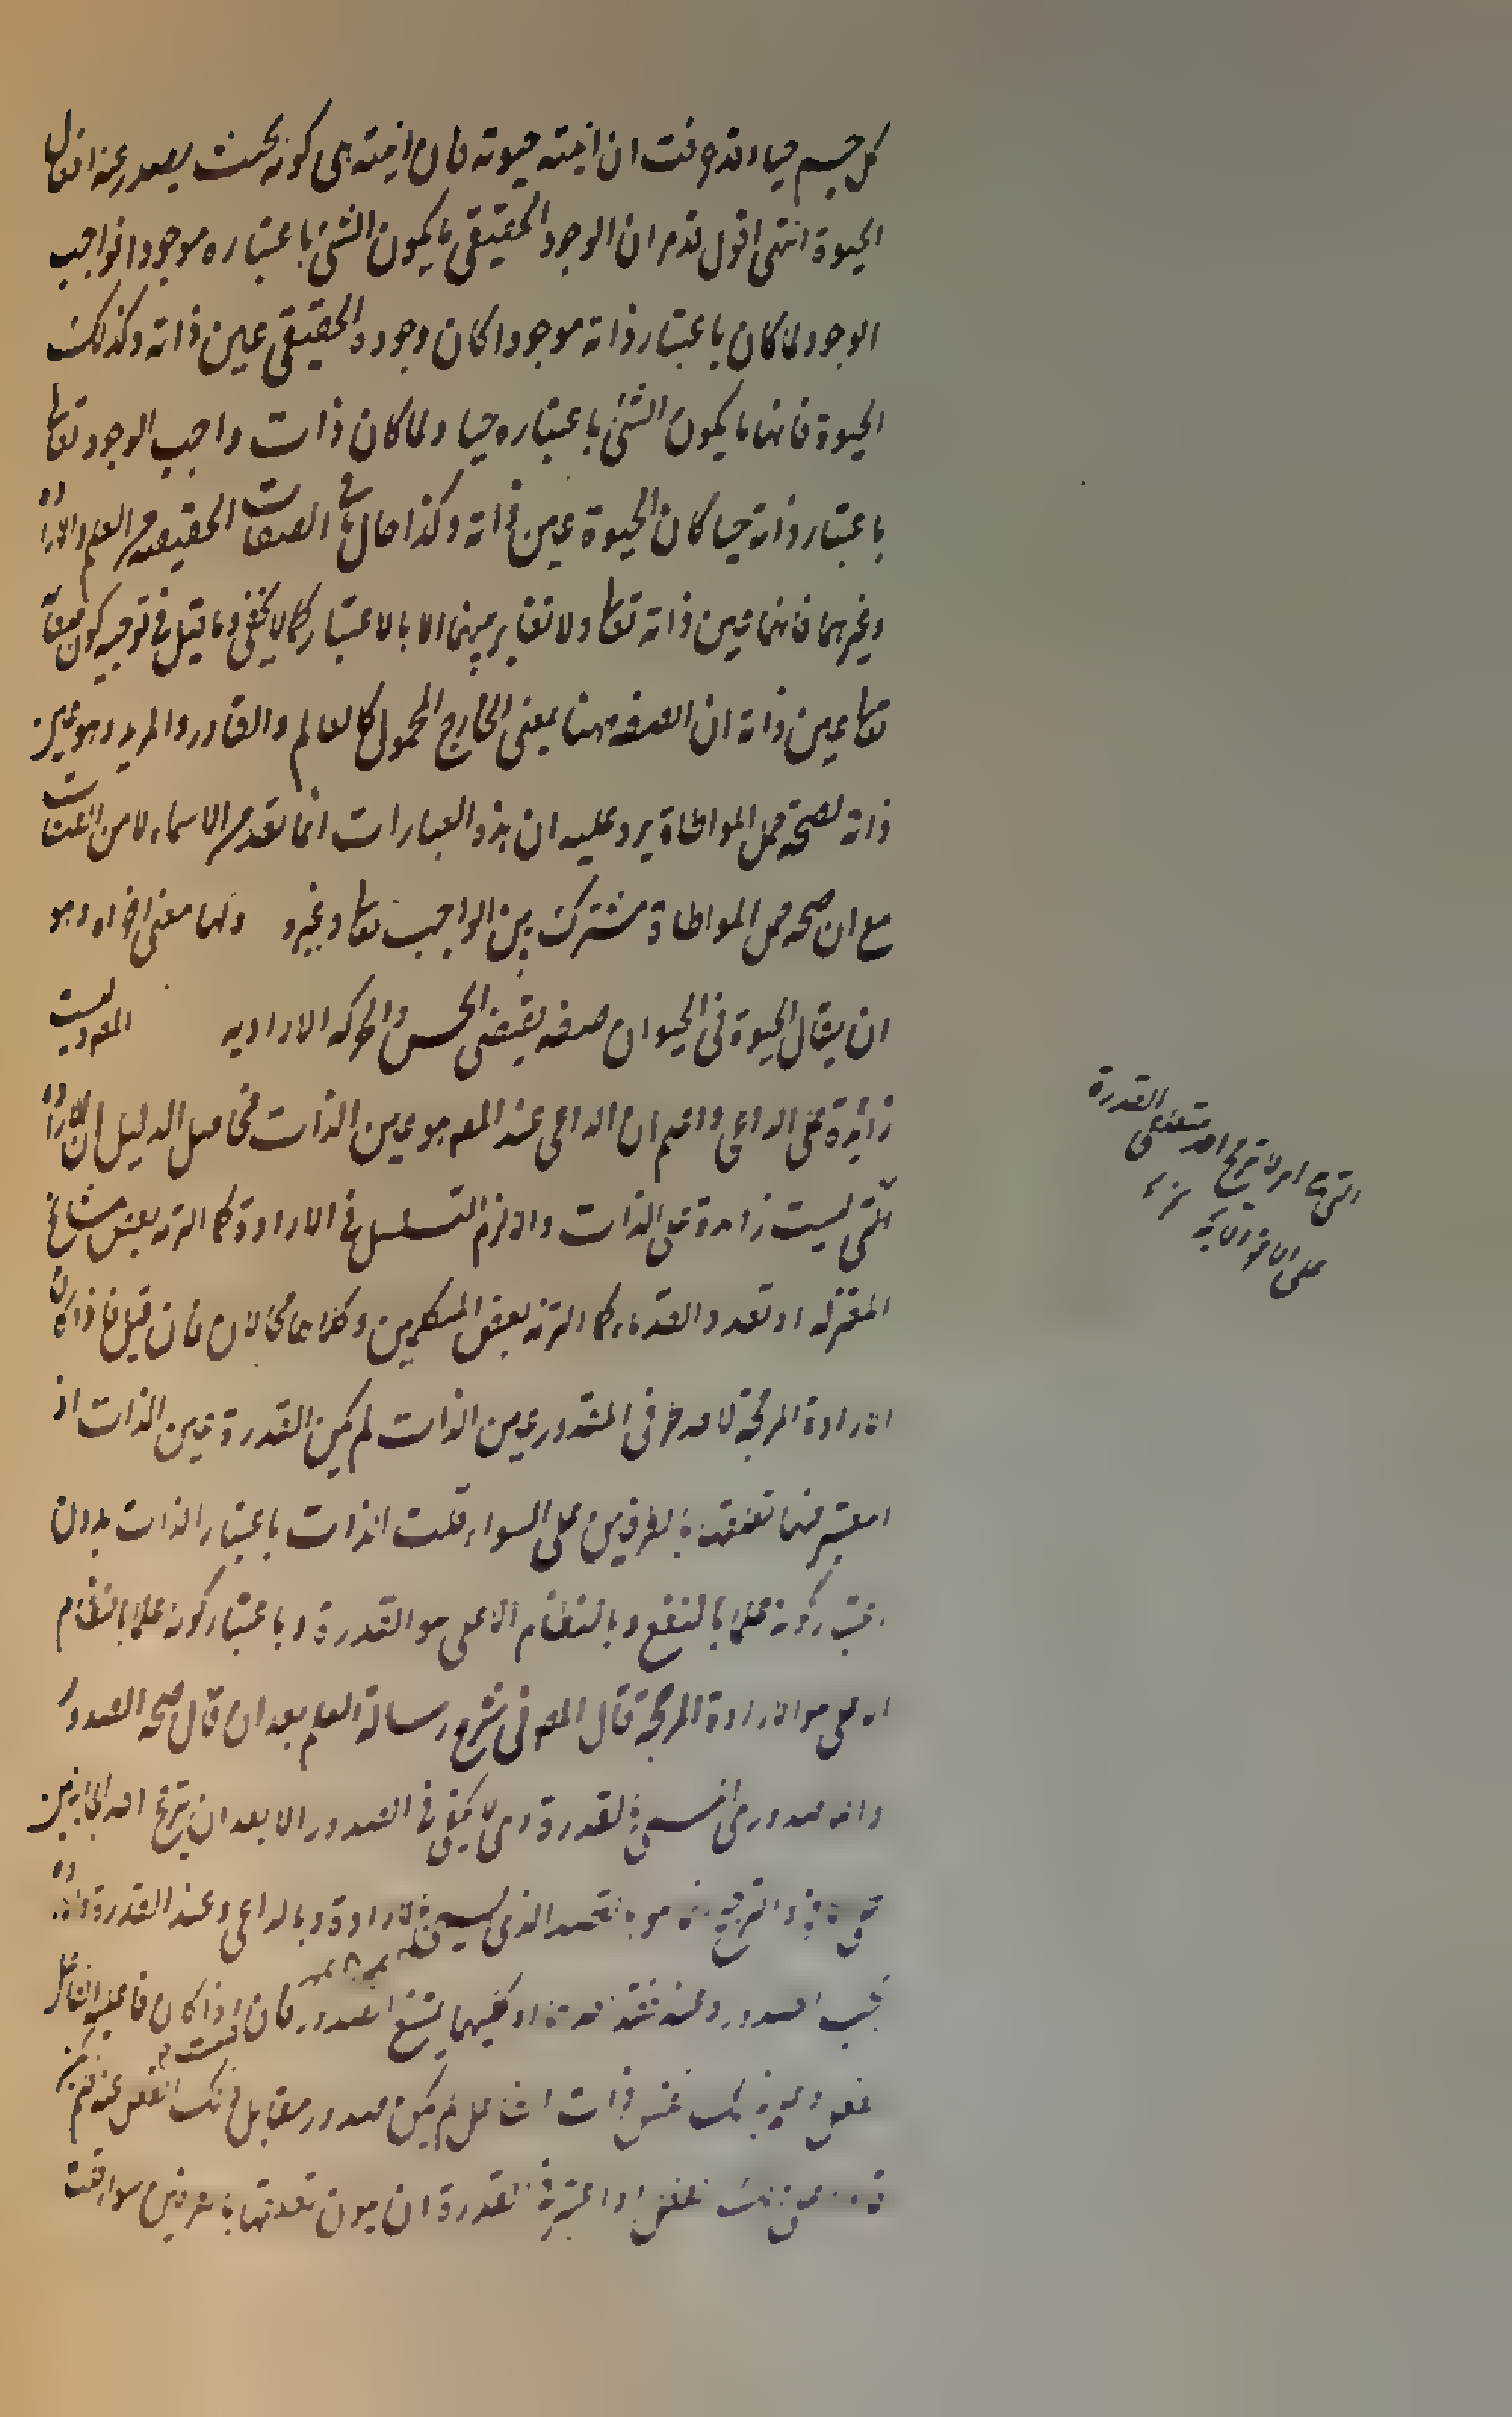 كل جسم حيا وقد عرفت ان انيته حيوته فان انيته هى كونه بحيث يصدر عنه افعال
الحيوة انتهى اقول قد مر ان الوجود الحقيقى ما يكون الشئ باعتباره موجودا فواجب
الوجود لما كان باعتبار ذاته موجودا كان وجوده الحقيقى عين ذاته وكذلك
الحيوة فانها ما يكون الشئ باعتباره حيا ولما كان ذات واجب الوجود تعا
باعتبار ذاته حيا كان الحيوة عين ذاته وكذا حال باقى الصفات الحقيقيه من العلم والارادة
وغيرهما فانها عين ذاته تعا ولا تغاير بينها الا بالاعتبار كما لا يخفى وما قيل فى توجيه كون صفاته
تعا عين ذاته ان الصفه ههنا بمعنى الخارج المحمول كالعالم والقادر والمريد وهو عين
ذاته لصحة حمل المواطاة يرد عليه ان هذه العبارات انما تعد من الاسماء لا من الصفات
مع ان صحه حمل المواطاة مشترك بين الواجب تعا وغيره ولها معنى اخر اه وهو
ان يقال الحيوة فى الحيوان صفه يقتضى الحس والحركه الاراديه المص وليست
زائدة على الداعى واعلم ان الداعى عند المص هو عين الذات فحاصل الدليل ان الارادة
التى ليست زائدة على الذات والا لزم التسلسل فى الارادة كما التزمه بعض مشايخ
المعتزله او تعدد القدماء كما التزمه بعض المتكلمين وكلاهما محالان فان قيل فاذا كان
الارادة المرجحة لاحد طرفى المقدور عين الذات لم يكن القدرة عين الذات اذ
المعتبر فيها تعلقها بالطرفين على السواء قلت الذات باعتبار الذات بدون
اعتبار كونه علما بالنفع وبالنظام الاعلى هو القدرة وباعتبار كونه علما بالنظام
الاعلى هو الارادة المرجحة قال المص فى شرح رسالة العلم بعد ان قال صحه الصدور
واللاصدور هى المسمى بالقدرة وهى لا يكفى فى الصدور الا بعد ان يترجح احد الجانبين
على الاخر والترجيح انما هو بالقصد الذى يسمى بالارادة وبالداعى وعند القدرة والارادة
يجب الصدور وعند فقد احدهما او كليهما يمتنع الصدور فان قلت اذا كان فاعلية الفاعل
لفعل وعليته بذلك نفس ذات الفاعل لم يكن صدور مقابل ذلك الفعل عنه فلم يكن
قادرا على ذلك الفعل اذ المعتبر فى القدرة ان يكون تعلقها بالطرفين سواء قلت
القدرة
على الاخر والا لم